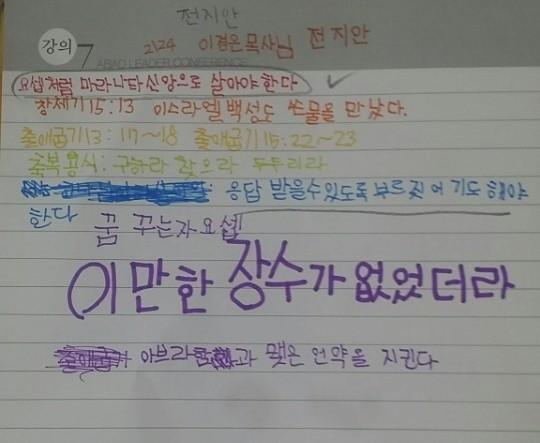 전지안
강의 7 2124 이겸은목사님 전지안
ABAD LEADER CONFERENCE
요셉처럼 마라나타 신앙으로 살아야한다
창세기15:13 이스라엘 백성도 쓴물을 만났다.
출애굽기13:17~18 출애굽기15:22~23
축복용식: 구하라 찾으라 두두리라
응답 받을수있도록 부르짖어 기도 해야
한다
꿈 꾸는자 요셉
이만한 장수가 없었더라
아브라함과 맺은 언약을 지킨다